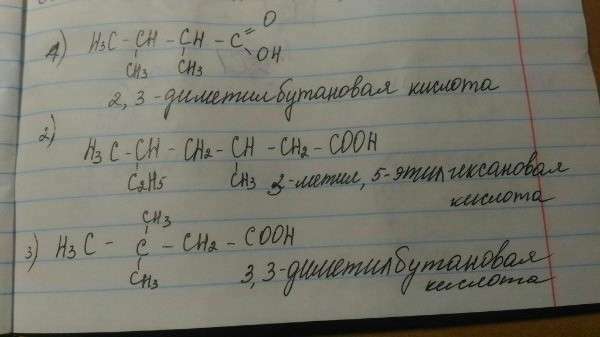 1) H₃C – CH – CH – C = O
CH₃ CH₃ OH
2, 3 - диметилбутановая кислота
2) H₃C – CH – CH₂ – CH – CH₂ – COOH
C₂H₅ CH₃ 3-метил, 5-этилгексановая
кислота
CH₃
3) H₃C – C – CH₂ – COOH
CH₃ 3,3-диметилбутановая
кислота